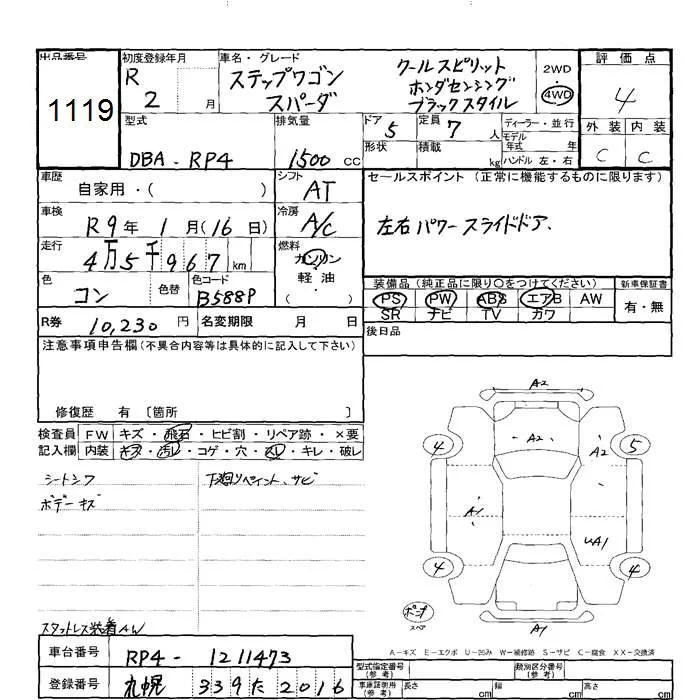 出品番号
1119
初度登録年月
R 2 月
車名・グレード
ステップワゴン
スパーダ
クールスピリット
ホンダセンシング
ブラックスタイル
2WD
4WD
評価点
4
型式
DBA - RP4
排気量
1500 CC
ドア 5
定員 7 人
ディーラー・並行
モデル年式 年
形状
積載 kg
ハンドル 左・右
外装 内装
C C
車歴
自家用・( )
シフト
AT
セールスポイント (正常に機能するものに限ります)
左右パワースライドドア.
車検
R9年 1月(16日)
冷房
A/C
走行
4万5千967 km
燃料
ガソリン
軽・油
( )
色
コン
色替
色コード
B588P
装備品(純正品に限り〇をつけてください)
新車保証書
PS PW ABS エアB AW
SR ナビ TV カワ
有・無
R券 10,230 円
名変期限 月 日
後日品
注意事項申告欄(不具合内容等は具体的に記入して下さい)
修復歴 有 〔箇所 〕
検査員
記入欄
FW キズ・飛石・ヒビ割・リペア跡・×要
内装 キズ・汚レ・コゲ・穴・スレ・キレ・破レ
シートシワ
ボデーキズ
下廻りペイント、サビ
スタットレス装着AW
A2
4
A2
A2
5
A1
UA1
4
4
パンク
スペア
A1
A-キズ E-エクボ U-凹み W-補修跡 S-サビ C-腐食 XX-交換済
車台番号
RP4 - 1211473
登録番号
札幌 339た2016
型式指定番号
(参考)
類別区分番号
(参考)
車庫証明用
(参考)
長さ cm
幅 cm
高さ cm